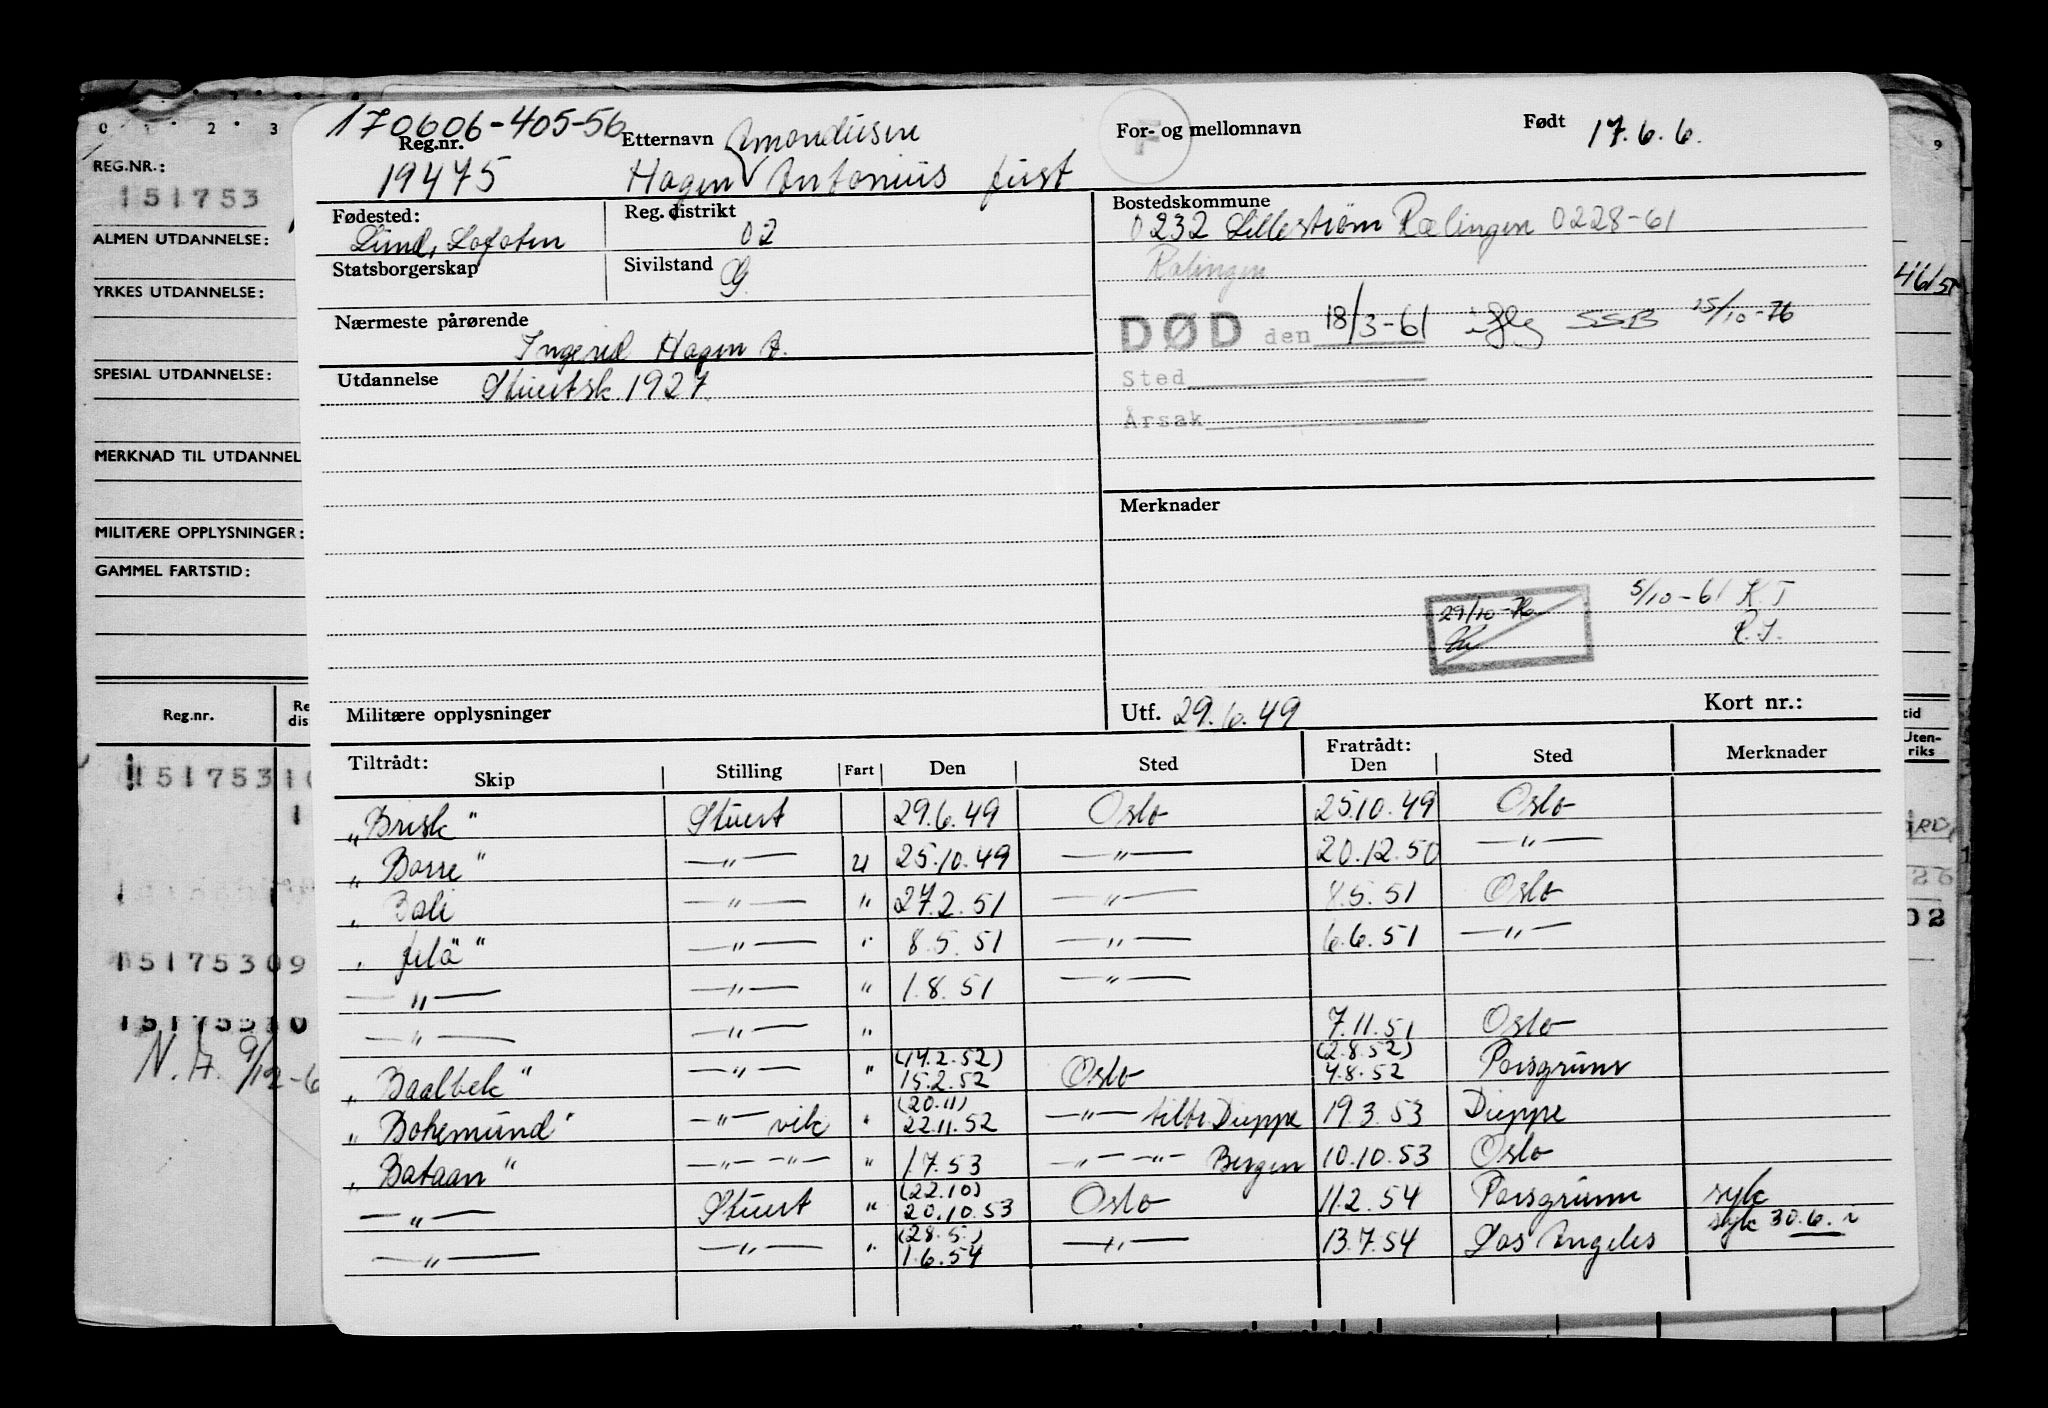 170606-405-56
Reg.nr. Etternavn Amondusen For- og mellomnavn Født 17.6.6.
19475 Hagen Antonius Just
Fødested: Reg. distrikt Bostedskommune
Lund, Lofoten 02 0232 Lillestrøm Rælingen 0228-61
Statsborgerskap Sivilstand G. Rælingen
DØD den 18/3-61 iflg SSB 15/10-76
Nærmeste pårørende
Ingerid Hagen A.
Sted
Utdannelse Stuertsk. 1927.
Årsak
Merknader
5/10-61 K.T
29/10-76
R.T.
Militære opplysninger Utf. 29.6.49 Kort nr.:
Tiltrådt: Fratrådt:
Skip Stilling Fart Den Sted Den Sted Merknader
„Brisk" Stuert 29.6.49 Oslo 25.10.49 Oslo
„Borre" —„— U 25.10.49 —„— 20.12.50 —„—
„Bali —„— " 27.2.51 —„— 8.5.51 Oslo
„Jelö" —„— " 8.5.51 —„— 6.6.51 —„—
—„— —„— " 1.8.51 —„—
—„— —„— " 7.11.51 Oslo
(14.2.52) (2.8.52)
„Baalbek" —„— " 15.2.52 Oslo 4.8.52 Porsgrunn
(20.11)
„Bohemund" —„— vik " 22.11.52 —„— tiltr. Dieppe 19.3.53 Dieppe
„Bataan" —„— —„— " 1.7.53 —„— —„— Bergen 10.10.53 Oslo
(22.10)
—„— Stuert " 20.10.53 Oslo 11.2.54 Porsgrunn syk
(28.5.) syk 30.6. i
—„— —„— " 1.6.54 —„— 13.7.54 Los Angeles
0 1 2 3
REG.NR.:
151753
ALMEN UTDANNELSE:
YRKES UTDANNELSE:
SPESIAL UTDANNELSE:
MERKNAD TIL UTDANNEL
MILITÆRE OPPLYSNINGER:
GAMMEL FARTSTID:
Reg.nr. Re
dis
15175310
1
15175309
15175310
N.A. 9/12-6
9
46/51
tid
Uten-
riks
26
02